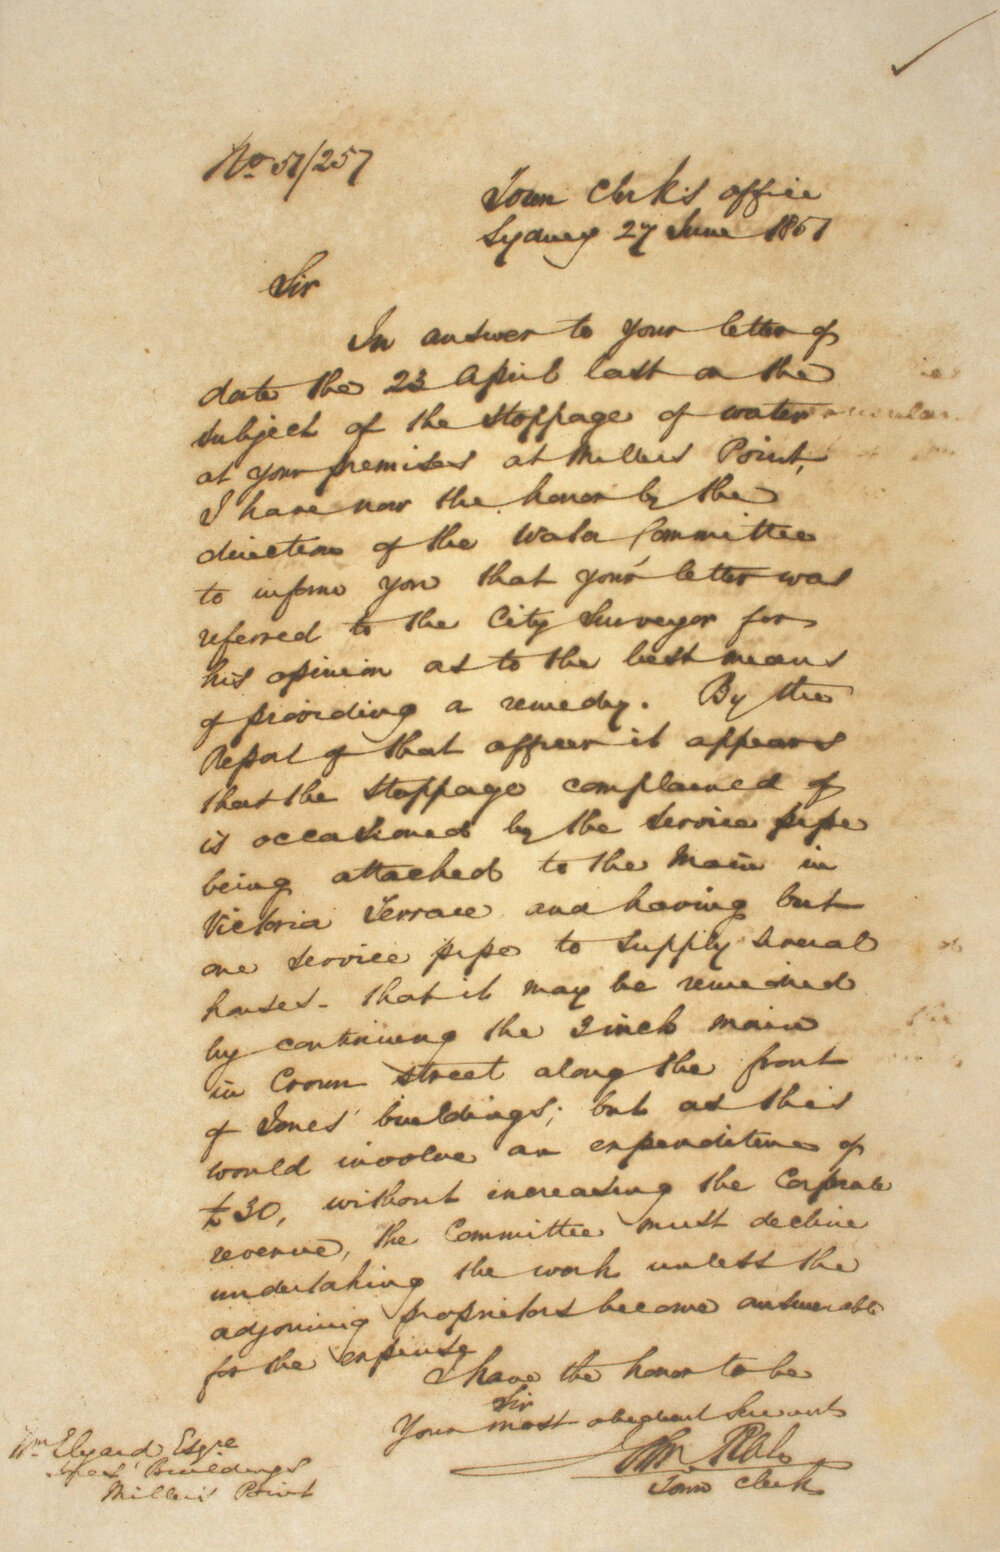 No 51/257
Town Clerk's office
Sydney 27 June 1851
Sir
In answer to your letter of
date the 23 April last on the
subject of the stoppage of water
at your premises at Millers Point,
I have now the honor by the
direction of the Water Committee
to inform you that your letter was
referred to the City Surveyor for
his opinion as to the best means
of providing a remedy. By the
Report of that officer it appears
that the stoppage complained of
is occasioned by the service pipe
being attached to the Main in
Victoria Terrace and having but
one service pipe to supply several
houses - that it may be remedied
by continuing the 3 inch main
in Crown street along the front
of Jones' buildings; but as this
would involve an expenditure of
£30, without increasing the Corporate
revenue, the Committee must decline
undertaking the work unless the
adjoining proprietors become answerable
for the expense
I have the honor to be
Sir
Your most obedient Servant
Town Clerk
Wm Elyard Esqre
Buildings
Miller's Point